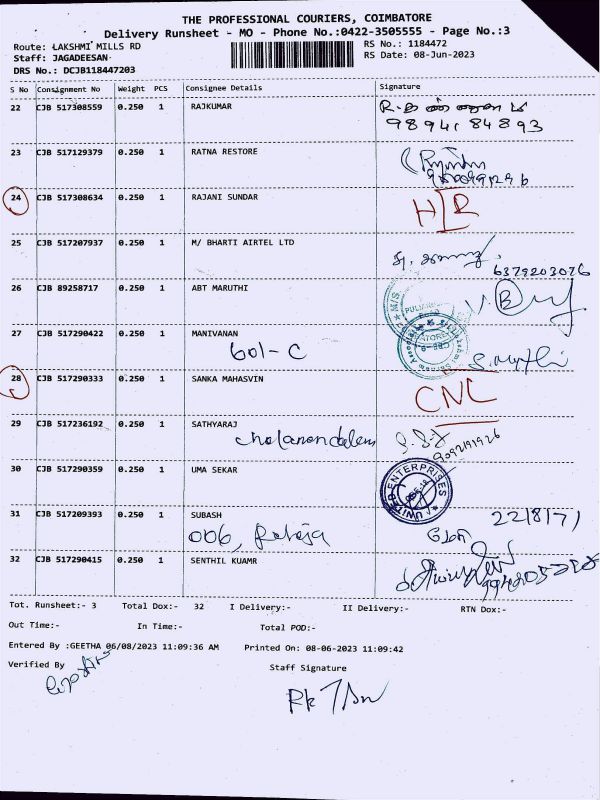 THE PROFESSIONAL COURIERS, COIMBATORE
Delivery Runsheet - MO - Phone No.:0422-3505555 - Page No.:3
Route: LAKSHMI MILLS RD RS No.: 1184472
Staff: JAGADEESAN RS Date: 08-Jun-2023
DRS No.: DCJB118447203
S No Consignment No Weight PCS Consignee Details Signature
22 CJB 517308559 0.250 1 RAJKUMAR
98941 84893
23 CJB 517129379 0.250 1 RATNA RESTORE
24 CJB 517308634 0.250 1 RAJANI SUNDAR
25 CJB 517207937 0.250 1 M/ BHARTI AIRTEL LTD
6379203076
26 CJB 89258717 0.250 1 ABT MARUTHI
27 CJB 517290422 0.250 1 MANIVANAN
601-C
28 CJB 517290333 0.250 1 SANKA MAHASVIN CNL
29 CJB 517236192 0.250 1 SATHYARAJ
9092191926
30 CJB 517290359 0.250 1 UMA SEKAR
UNITED ENTERPRISES
31 CJB 517209393 0.250 1 SUBASH 22/8/71
006, Raheja
32 CJB 517290415 0.250 1 SENTHIL KUAMR
Tot. Runsheet:- 3 Total Dox:- 32 I Delivery:- II Delivery:- RTN Dox:-
Out Time:- In Time:- Total POD:-
Entered By :GEETHA 06/08/2023 11:09:36 AM Printed On: 08-06-2023 11:09:42
Verified By Staff Signature